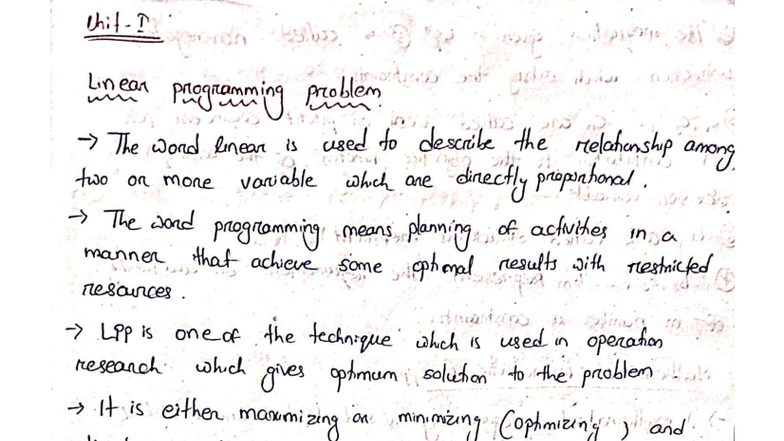 Unit-I
Linear programming problem
→ The word linear is used to describe the relationship among
two or more variable which are directly proportional.
→ The word programming means planning of activities in a
manner that achieve some optional results with restricted
resources.
→ LPP is one of the technique which is used in operation
research which gives optimum solution to the problem
→ It is either maxumizing or minimizing (optimizing) and